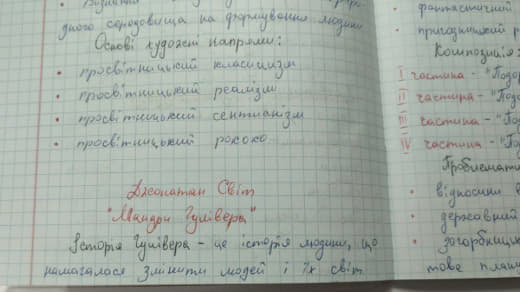 дного середовища на формування людини
Основі художні напрями:
• просвітницький класицизм
• просвітницький реалізм
• просвітницький сентианізм
• просвітницький рококо
Джонатан Світ
"Мандри Гулівера"
Історія Гулівера - це історія людини, що
намагалася змінити людей і їх світ
фантастичний
• пригодницький р
Композиція:
I частина - "Подо
II частина - "По
III частина - "По
IV частина - "По
Проблемати
• відносини в
• державний
• загарбниц
тове